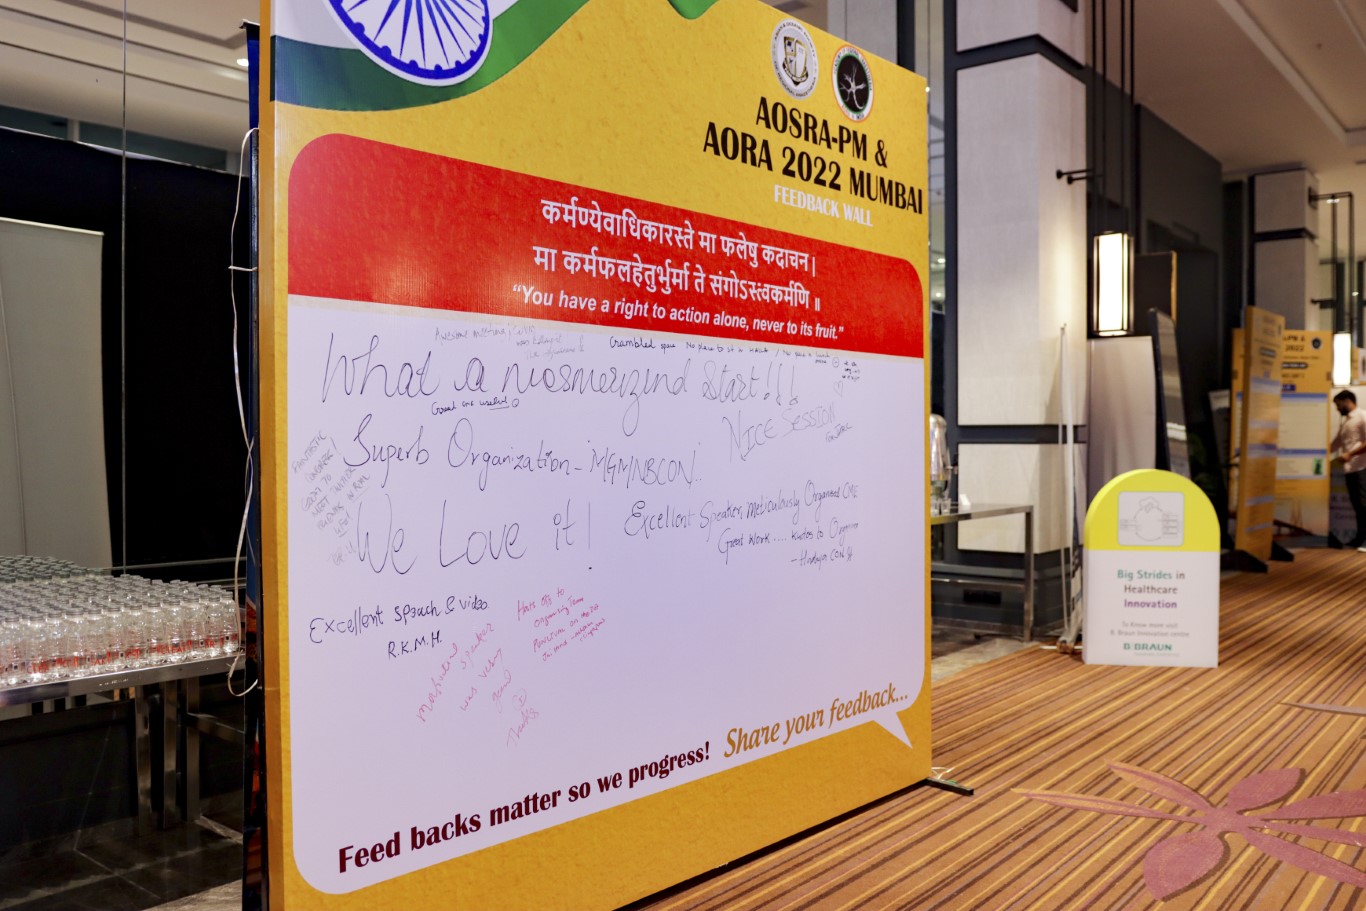 AOSRA-PM &
AORA 2022 MUMBAI
FEEDBACK WALL
कर्मण्येवाधिकारस्ते मा फलेषु कदाचन|
मा कर्मफलहेतुर्भुर्मा ते संगोऽस्त्वकर्मणि ॥
"You have a right to action alone, never to its fruit."
Awesome meeting
Crambled space No place to sit
What a mesmerizind start!!!
Great one useful
NICE SESSION
Superb Organization - MGMNBCON..
We Love it!
Excellent Speaker, Meticulously Organised CME
Great work.... Kudos to
Excellent speach & video
R.K.M.H.
Hats off to
Organising Team
speaker
was very
good
Feed backs matter so we progress!
Share your feedback...
Big Strides in
Healthcare
Innovation
To Know more visit
B. Braun Innovation centre
B|BRAUN
2022